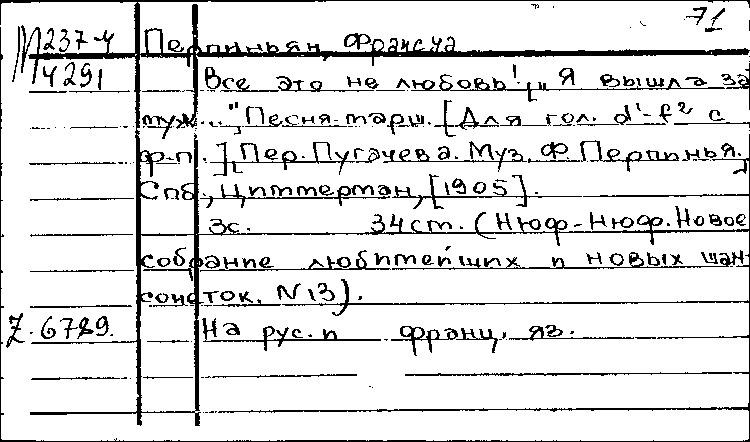 71
М 237-4 Перпиньян, Франсуа
4291 Все это не любовь!, „Я вышла за
муж...", Песня-марш. [Для гол. d'-f² с
ф-п.], Пер. Пугачева. Муз. Ф. Перпинья.
Спб., Циммерман, [1905].
3с. 34ст. (Нюф-Нюф. Новое
собрание любимейших и новых шан-
сонеток. N 13).
Z. 6789. На рус. и франц. яз.